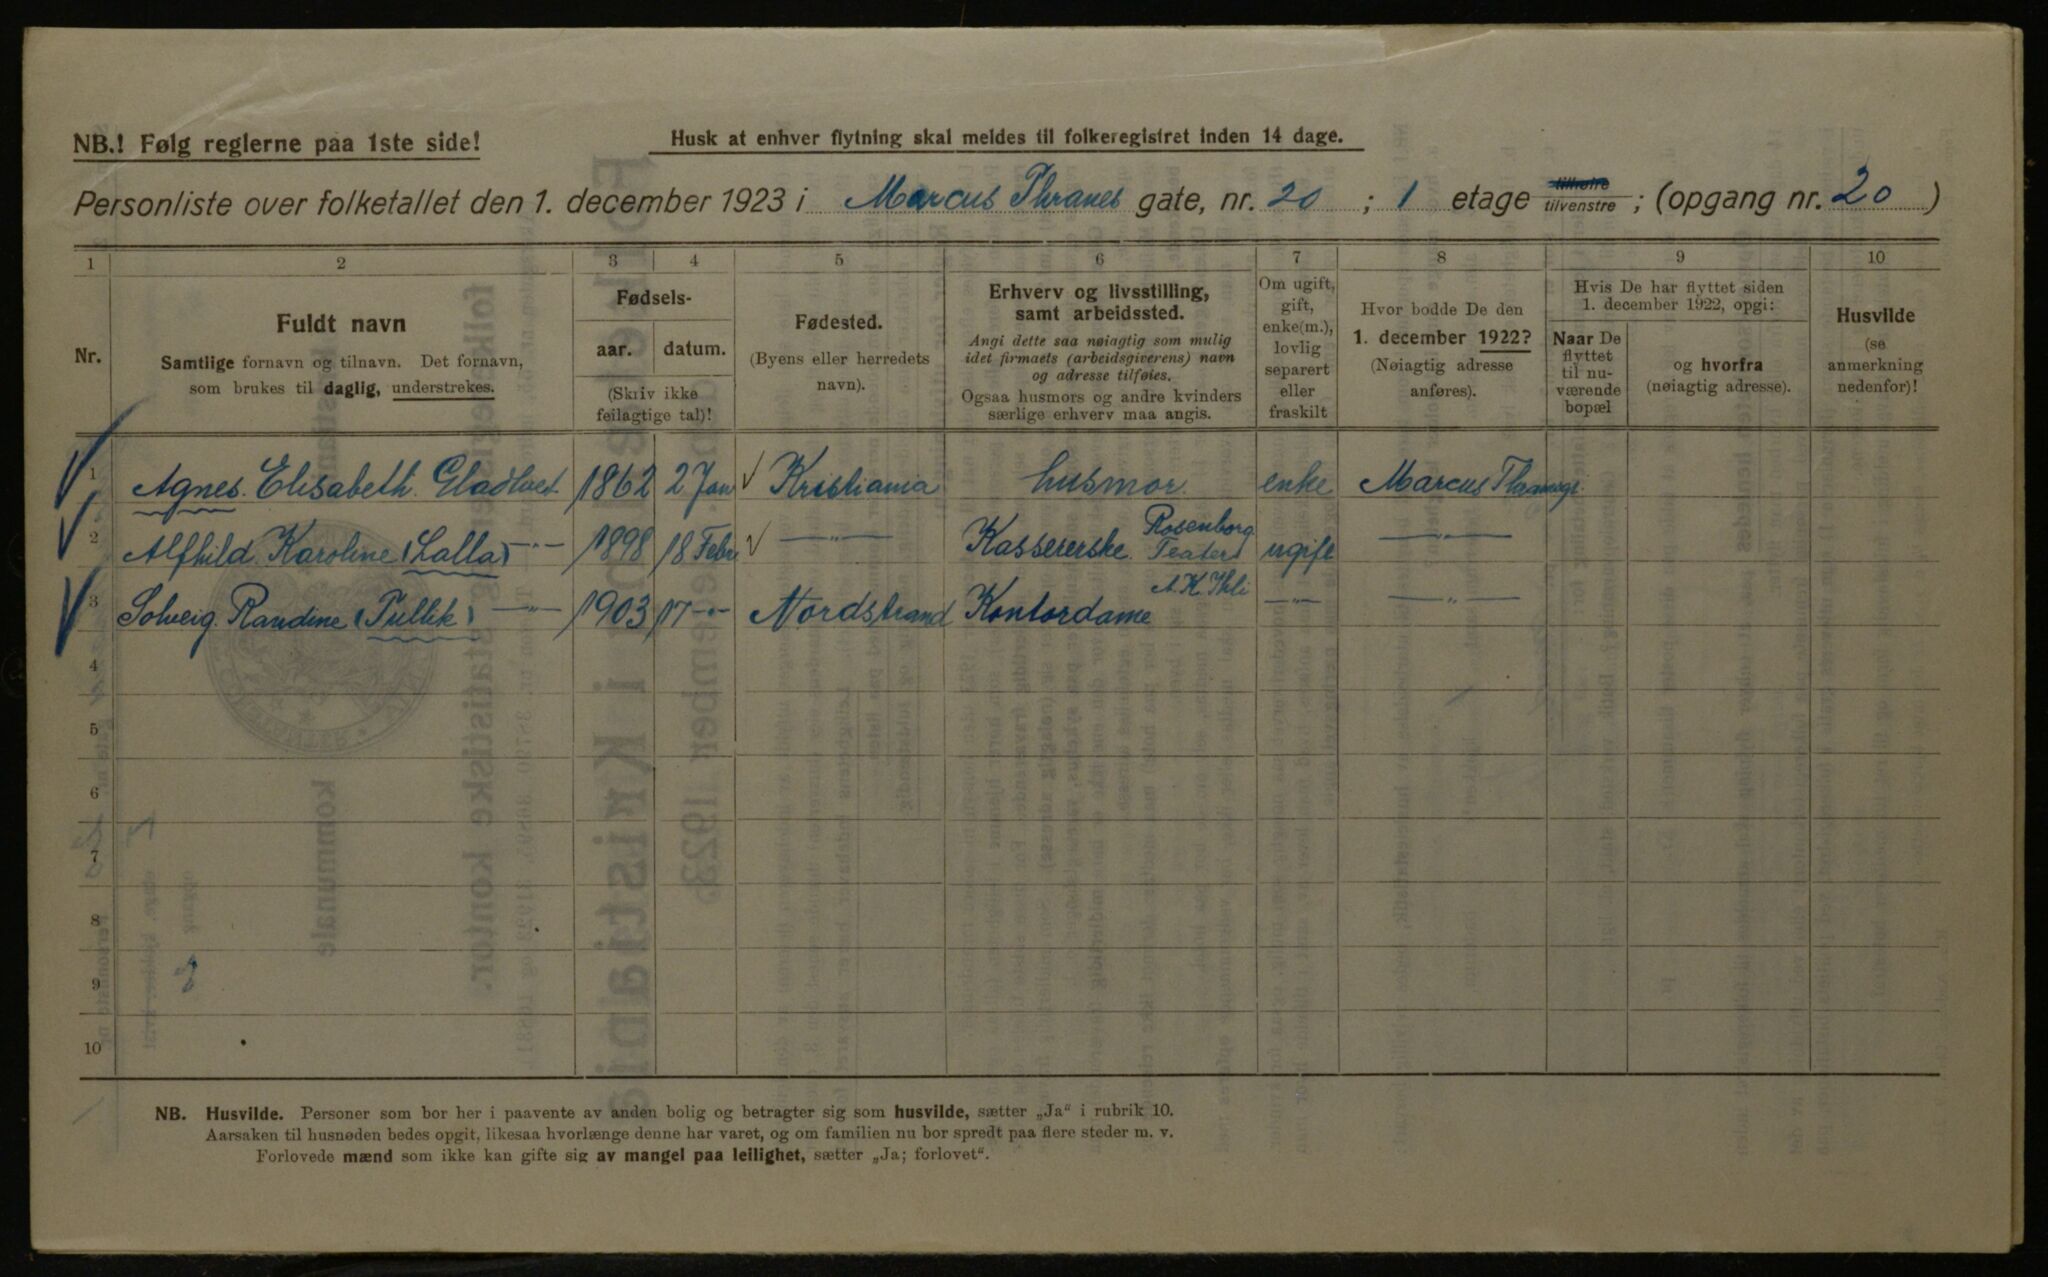 NB.! Følg reglerne paa 1ste side!
Husk at enhver flytning skal meldes til folkeregistret inden 14 dage.
Personliste over folketallet den 1. december 1923 i Marcus Thranes gate, nr. 20 ; 1 etage tilhøire tilvenstre ; (opgang nr. 20 )
1 2 3 4 5 6 7 8 9 10
Nr.
Fuldt navn
Samtlige fornavn og tilnavn. Det fornavn,
som brukes til daglig, understrekes.
Fødsels-
aar. datum.
(Skriv ikke
feilagtige tal)!
Fødested.
(Byens eller herredets
navn).
Erhverv og livsstilling,
samt arbeidssted.
Angi dette saa nøiagtig som mulig
idet firmaets (arbeidsgiverens) navn
og adresse tilføies.
Ogsaa husmors og andre kvinders
særlige erhverv maa angis.
Om ugift,
gift,
enke(m.),
lovlig
separert
eller
fraskilt
Hvor bodde De den
1. december 1922?
(Nøiagtig adresse
anføres).
Hvis De har flyttet siden
1. december 1922, opgi:
Naar De
flyttet
til nu-
værende
bopæl
og hvorfra
(nøiagtig adresse).
Husvilde
(se
anmerkning
nedenfor)!
1 Agnes Elisabeth Gladtvet 1862 2 Jan Kristiania husmor. enke Marcus Thranesgt.
2 Alfhild Karoline (Lalla) —"— 1898 18 Febr —"— Kassererske. Rosenborg Teater ugift —"—
3 Solveig Randine (Tullik) —"— 1903 17 —"— Nordstrand Kontordame A.K. Ihli —"— —"—
4
5
6
7
8
9
10
NB. Husvilde. Personer som bor her i paavente av anden bolig og betragter sig som husvilde, sætter „Ja“ i rubrik 10.
Aarsaken til husnøden bedes opgit, likesaa hvorlænge denne har varet, og om familien nu bor spredt paa flere steder m. v.
Forlovede mænd som ikke kan gifte sig av mangel paa leilighet, sætter „Ja; forlovet“.